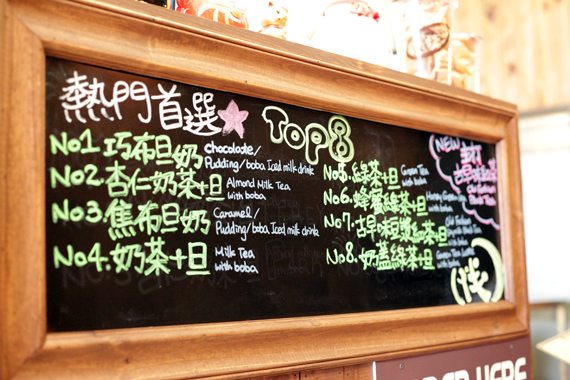 熱門首選 Top8
No1.巧布旦奶 chocolate/
Pudding/boba Iced milk drink
No2.杏仁奶茶+旦 Almond Milk Tea
with boba
No3.焦布旦奶 Caramel/
Pudding/boba Iced milk drink
No4.奶茶+旦 Milk Tea
with boba
No5.綠茶+旦 Green Tea
with boba
No6.蜂蜜綠茶+旦 Honey Green Tea
with boba
No7.古早味旦綠茶+旦
with boba
No8.奶蓋綠茶+旦
with boba
NEW
ORDER HERE